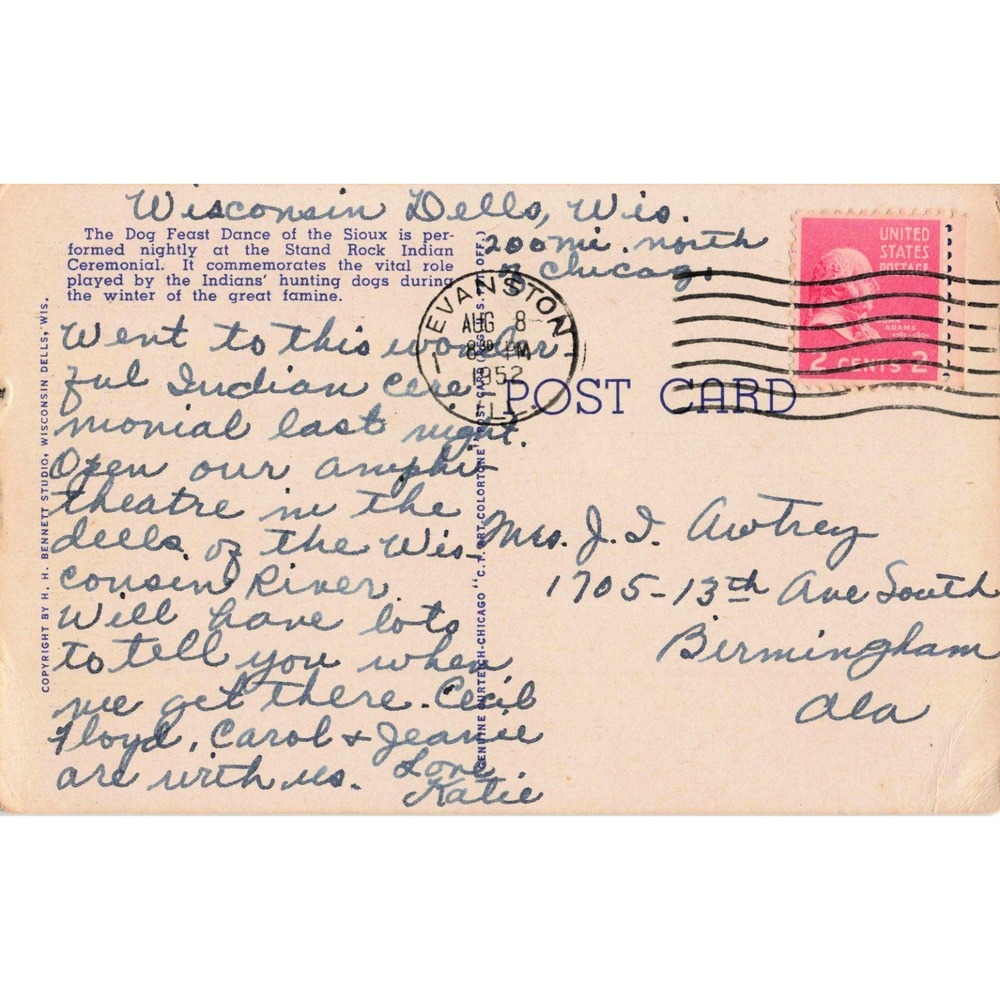 Wisconsin Dells, Wis.
200 mi. north
of Chicago
The Dog Feast Dance of the Sioux is per-
formed nightly at the Stand Rock Indian
Ceremonial. It commemorates the vital role
played by the Indians' hunting dogs during
the winter of the great famine.
Went to this wonder-
ful Indian cere-
monial last night.
Open our amphi-
theatre in the
dells of the Wis-
consin River.
Will have lots
to tell you when
we get there. Cecil
Floyd, Carol & Jeanie
are with us. Love
Katie
COPYRIGHT BY H. H. BENNETT STUDIO, WISCONSIN DELLS, WIS.
GENUINE CURTEICH-CHICAGO "C.T. ART-COLORTONE" POST CARD (REG. U.S. PAT. OFF.)
EVANSTON
AUG 8
8 30 PM
1952
ILL.
POST CARD
UNITED
STATES
POSTAGE
JOHN
ADAMS
2 CENTS 2
Mrs. J. I. Awtrey
1705-13th Ave South
Birmingham
Ala